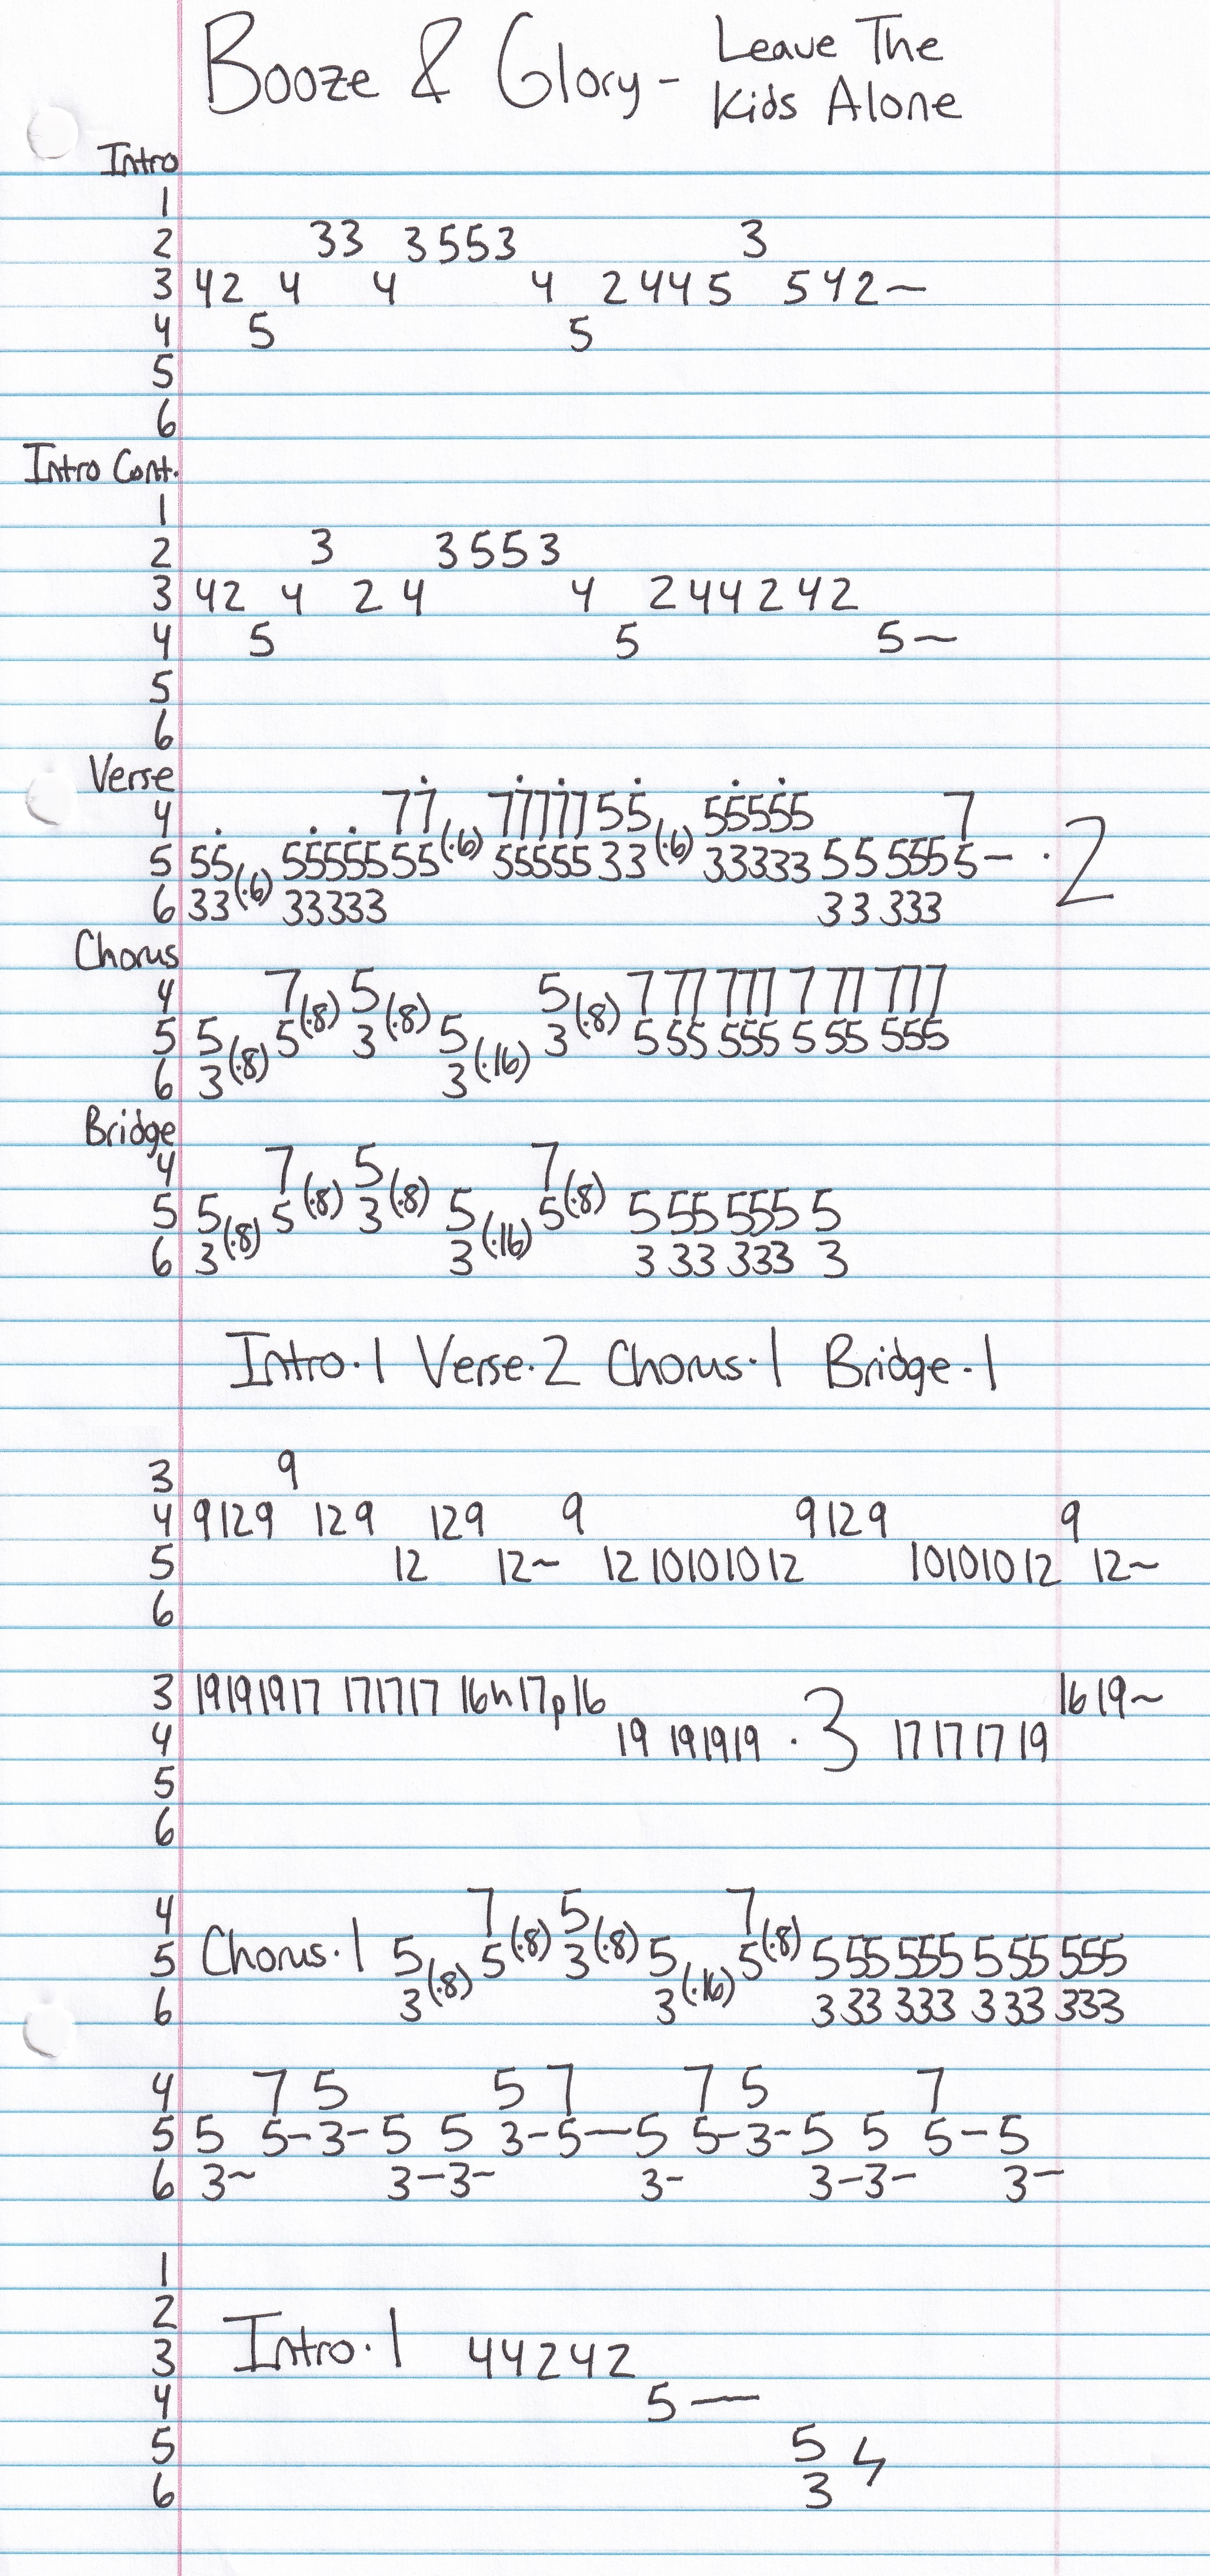 Booze & Glory - Leave The
Kids Alone
Intro
1
2 33 3553 3
3 42 4 4 4 2445 542~
4 5 5
5
6
Intro Cont.
1
2 3 3553
3 42 4 24 4 244242
4 5 5 5~
5
6
Verse
4 77(·6) 7777755(·6) 55555 7
5 55(·6) 5555555 5555533 33333 55 5555— ·2
6 33 33333 33 333
Chorus
4 7(·8) 5(·8) 5(·8) 7 77 777 7 77 777
5 5(·8) 5 3 5(·16) 3 5 55 555 5 55 555
6 3 3
Bridge
4 7 5 7
5 5(·8) 5(·8) 3(·8) 5(·16) 5(·8) 5 55 555 5
6 3 3 3 33 333 3
Intro·1 Verse·2 Chorus·1 Bridge·1
3 9
4 9129 129 129 9 9129 9
5 12 12~ 12 10101012 10101012 12~
6
3 19191917 171717 16h17p16 1619~
4 19 191919 ·3 17171719
5
6
4 7 5 7
5 Chorus·1 5(·8) 5(·8) 3(·8) 5(·16) 5(·8) 5 55 555 5 55 555
6 3 3 3 33 333 3 33 333
4 7 5 5 7 7 5 7
5 5 5-3-5 5 3-5—5 5-3-5 5 5-5
6 3~ 3-3- 3- 3-3- 3-
1
2
3 Intro·1 44242
4 5—
5 5
6 3